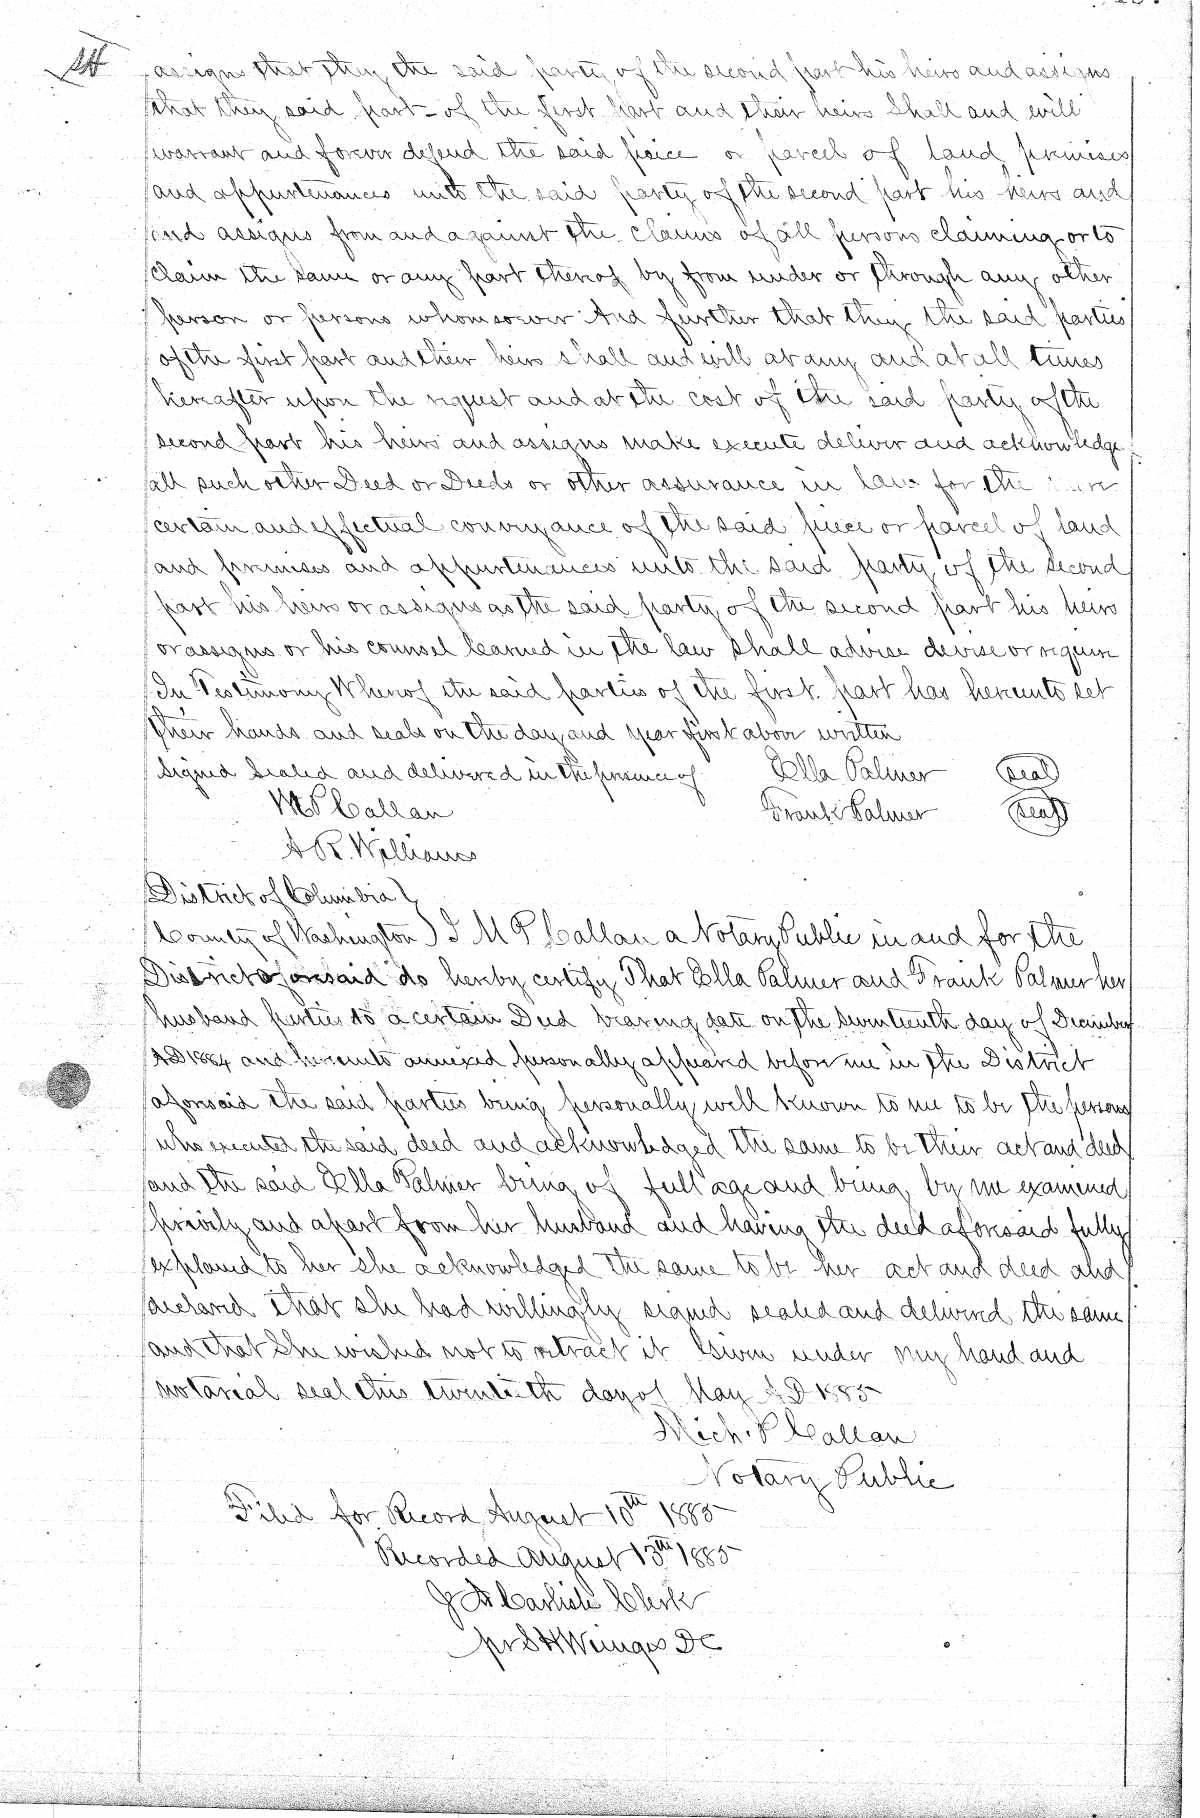 SH
assigns that they the said party of the second part his heirs and assigns
that they said part- of the first part and their heirs Shall and will
warrant and forever defend the said peice or parcel of land premises
and appurtenances unto the said party of the second part his heirs and
and assigns from and against the claims of all persons claiming or to
claim the same or any part thereof by from under or through any other
person or persons whomsoever And further that they the said parties
of the first part and their heirs shall and will at any and at all times
hereafter upon the request and at the cost of the said party of the
second part his heirs and assigns make execute deliver and acknowledge
all such other Deed or Deeds or other assurance in law for the more
certain and effectual conveyance of the said piece or parcel of land
and premises and appurtenances unto the said party of the second
part his heirs or assigns as the said party of the second part his heirs
or assigns or his counsel learned in the law shall advise devise or require
In Testimony Whereof the said parties of the first part has hereunto set
their hands and seals on the day and year first above written
Signed Sealed and delivered in the presence of Ella Palmer seal
M P Callan Frank Palmer seal
A R. Williams
District of Columbia }
County of Washington } I M P Callan a Notary Public in and for the
District aforesaid do hereby certify That Ella Palmer and Frank Palmer her
husband parties to a certain Deed bearing date on the seventeenth day of December
AD 1884 and hereunto annexed personally appeared before me in the District
aforesaid the said parties being personally well known to me to be the persons
who executed the said deed and acknowledged the same to be their act and deed
and the said Ella Palmer being of full age and being by me examined
privily and apart from her husband and having the deed aforesaid fully
explaned to her she acknowledged the same to be her act and deed and
declared that she had willingly signed sealed and delivered the same
and that She wished not to retract it Given under my hand and
notarial seal this twentieth day of May A D 1885
Mich. P Callan
Notary Public
Filed for Record August 10th 1885
Recorded August 13th 1885
J A Carlisle Clerk
pr S H DC